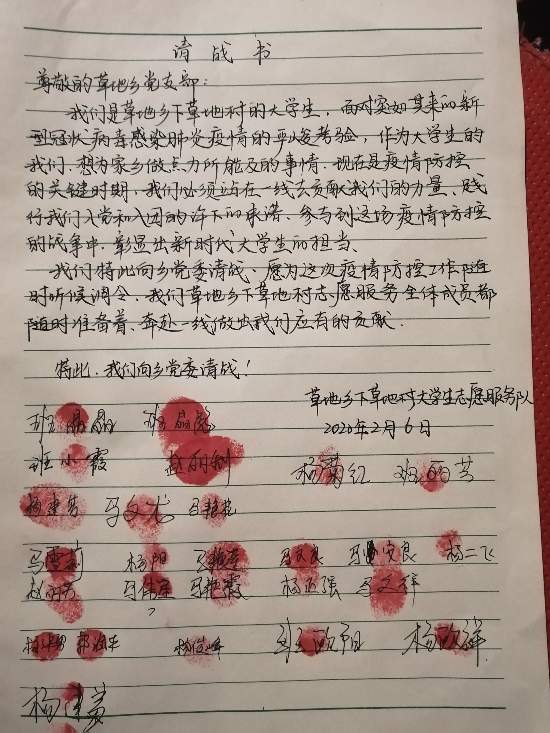 请战书
尊敬的草地乡党支部：
我们是草地乡下草地村的大学生，面对突如其来的新
型冠状病毒感染肺炎疫情的严峻考验，作为大学生的
我们，想为家乡做点力所能及的事情，现在是疫情防控
的关键时期，我们必须站在一线去贡献我们的力量，践
行我们入党和入团的许下的承诺，参与到这场疫情防控
的战争中，彰显出新时代大学生的担当。
我们特此向乡党委请战，愿为这次疫情防控工作随
时听候调令，我们草地乡下草地村志愿服务全体成员都
随时准备着，奔赴一线做出我们应有的贡献。
特此，我们向乡党委请战！
草地乡下草地村大学生志愿服务队
2020年2月6日
班晶晶 班晶彪
班小霞 赵丽钏 杨菊红 班丽芳
杨建芳 马文龙 马艳花
马雪莉 杨阳 马文良 杨二飞
赵丽芳 马伟军 马艳霞 杨亚强 马文祥
杨俊峰 班欧阳 杨改祥
杨建芳